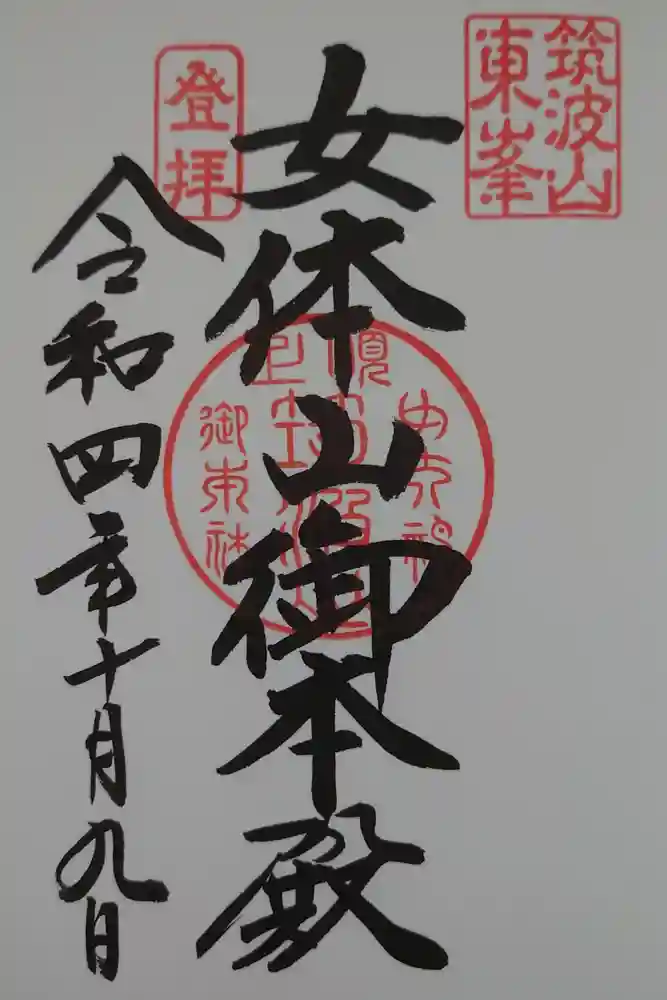 筑波山
東峯
女体山御本殿
登拝
令和四年十月九日